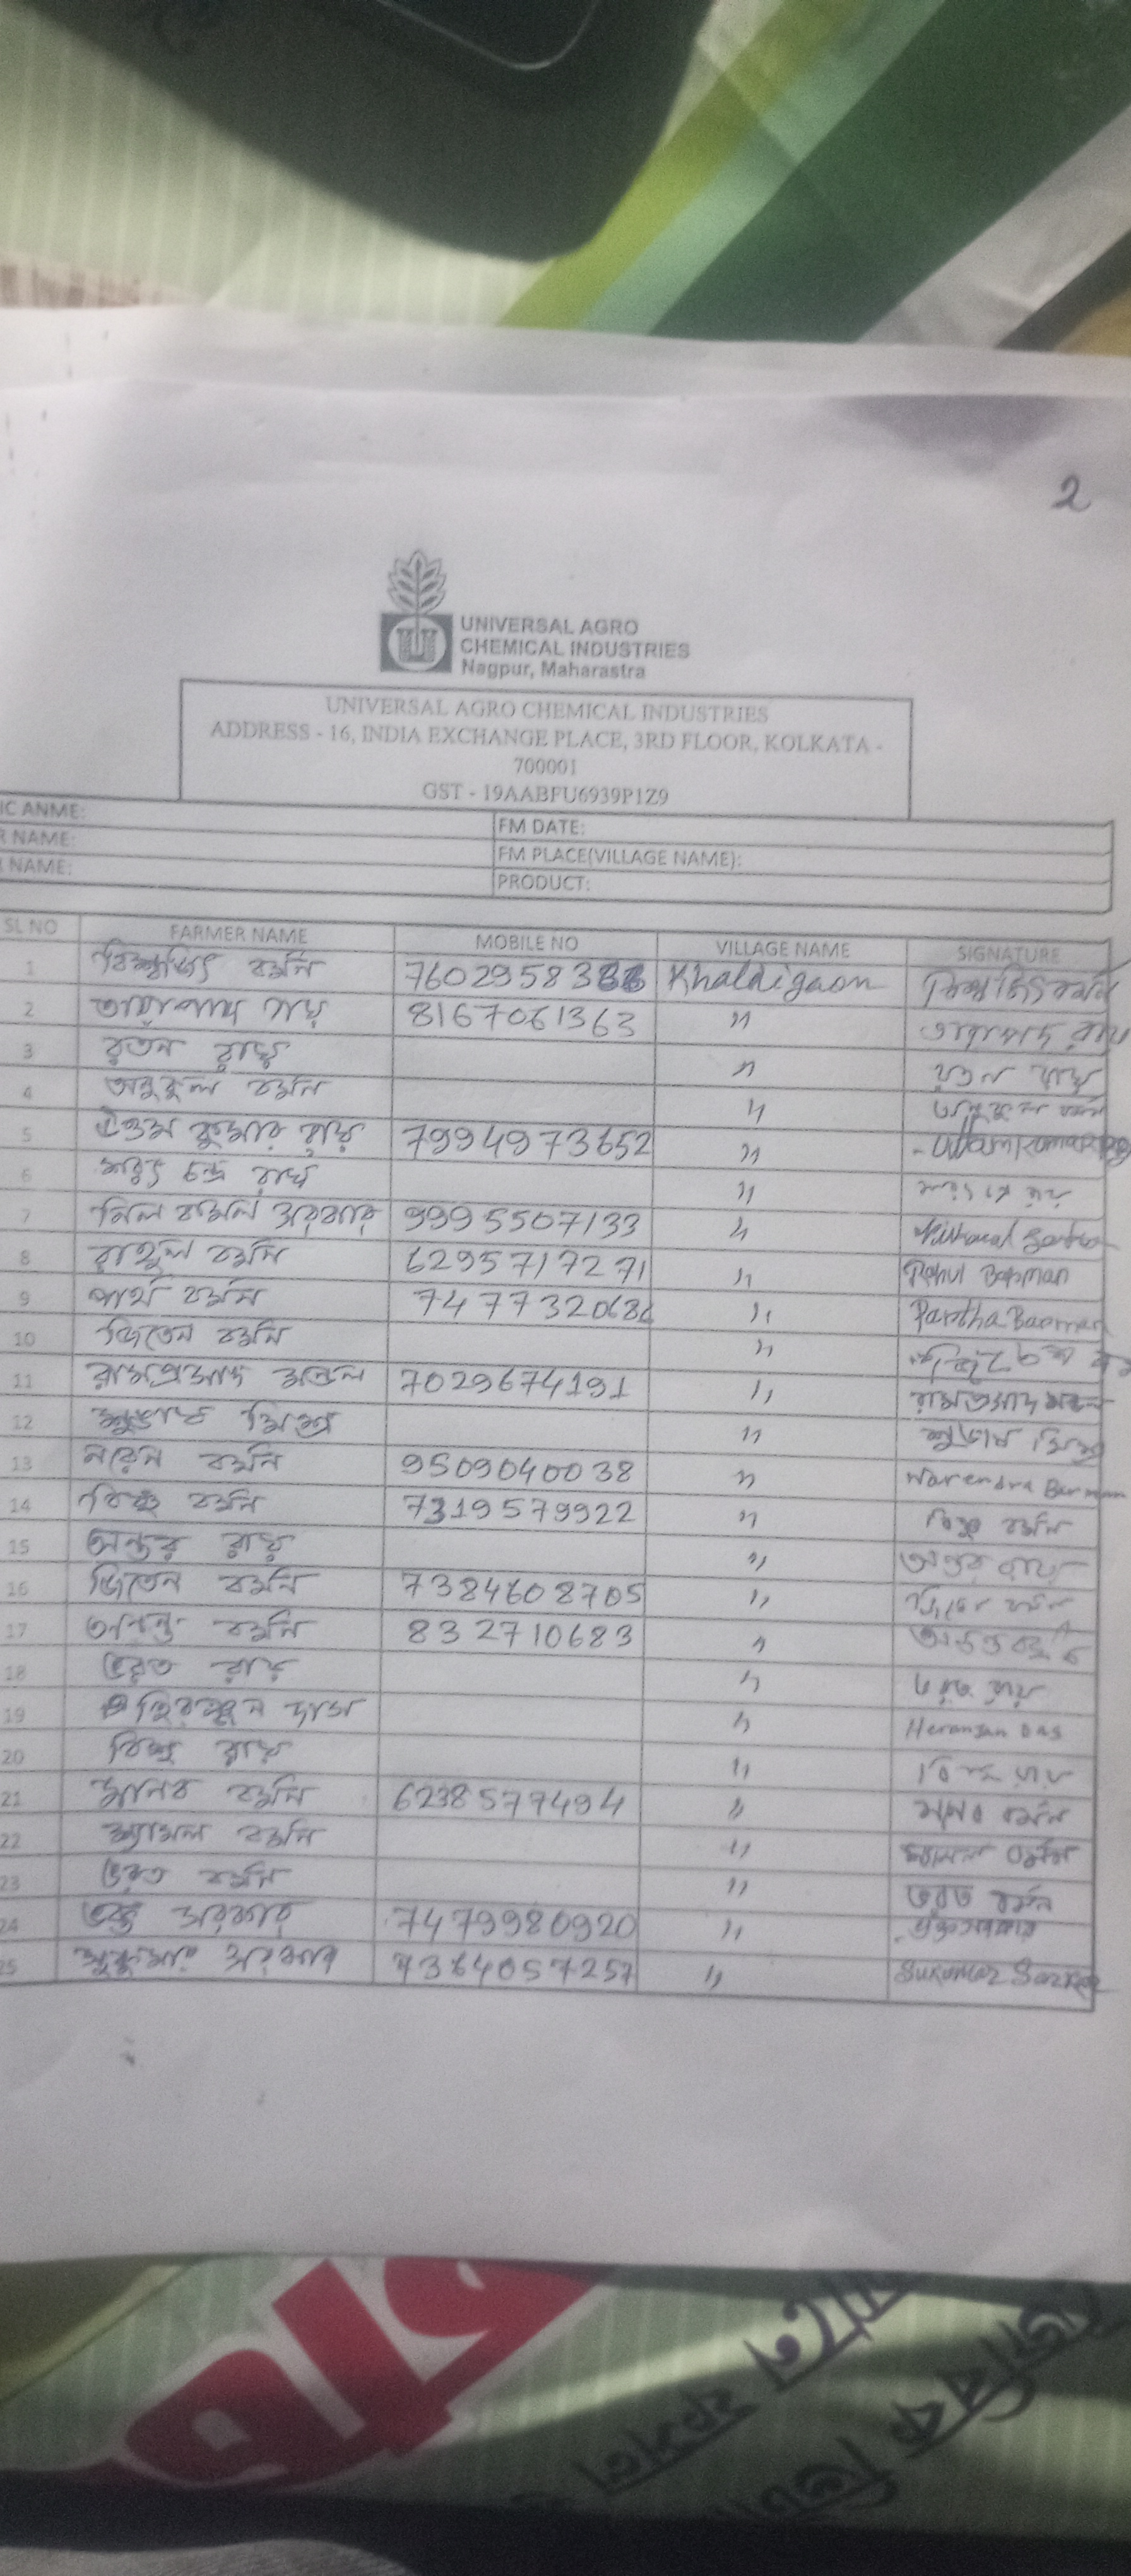 2
UNIVERSAL AGRO
CHEMICAL INDUSTRIES
Nagpur, Maharastra
UNIVERSAL AGRO CHEMICAL INDUSTRIES
ADDRESS - 16, INDIA EXCHANGE PLACE, 3RD FLOOR, KOLKATA -
700001
GST - 19AABFU6939P1Z9
IC ANME: FM DATE:
R NAME: FM PLACE(VILLAGE NAME):
NAME: PRODUCT:
SL NO FARMER NAME MOBILE NO VILLAGE NAME SIGNATURE
1 বিশ্বজিৎ বর্মন Khaldigaon বিশ্বজিৎ বর্মন
2 তারাপদ রায় 8167061363 " তারাপদ রায়
3 রতন রায় " রতন রায়
4 অনুকুল বর্মন " অনুকুল বর্মন
5 উত্তম কুমার রায় 7994973652 " Uttam Kumar Roy
6 শরৎ চন্দ্র রায় "
7 সরকার 9995507133 "
8 রাহুল বর্মন 6295717271 " Rahul Barman
9 পার্থ বর্মন 7477320686 " Partha Barman
10 জিতেন বর্মন "
11 রামপ্রসাদ মন্ডল 7029674191 " রামপ্রসাদ মন্ডল
12 সুভাষ মিশ্র " সুভাষ মিশ্র
13 নরেন বর্মন 9509040038 " Narendra Barman
14 বিষ্ণু বর্মন 7319579922 " বিষ্ণু বর্মন
15 অন্তর রায় " অন্তর রায়
16 জিতেন বর্মন 7384608705 " জিতেন বর্মন
17 অনন্ত বর্মন 832710683 "
18 ভরত রায় " ভরত রায়
19 হিরঞ্জন দাস " Heranjan Das
20 বিশু রায় " রায়
21 মানব বর্মন 6238577494 " মানব বর্মন
22 শ্যামল বর্মন " শ্যামল বর্মন
23 ভরত বর্মন " ভরত বর্মন
24 ভক্ত সরকার 7479980920 " ভক্ত সরকার
25 সুকুমার সরকার 7364057257 " Sukumar Sarkar